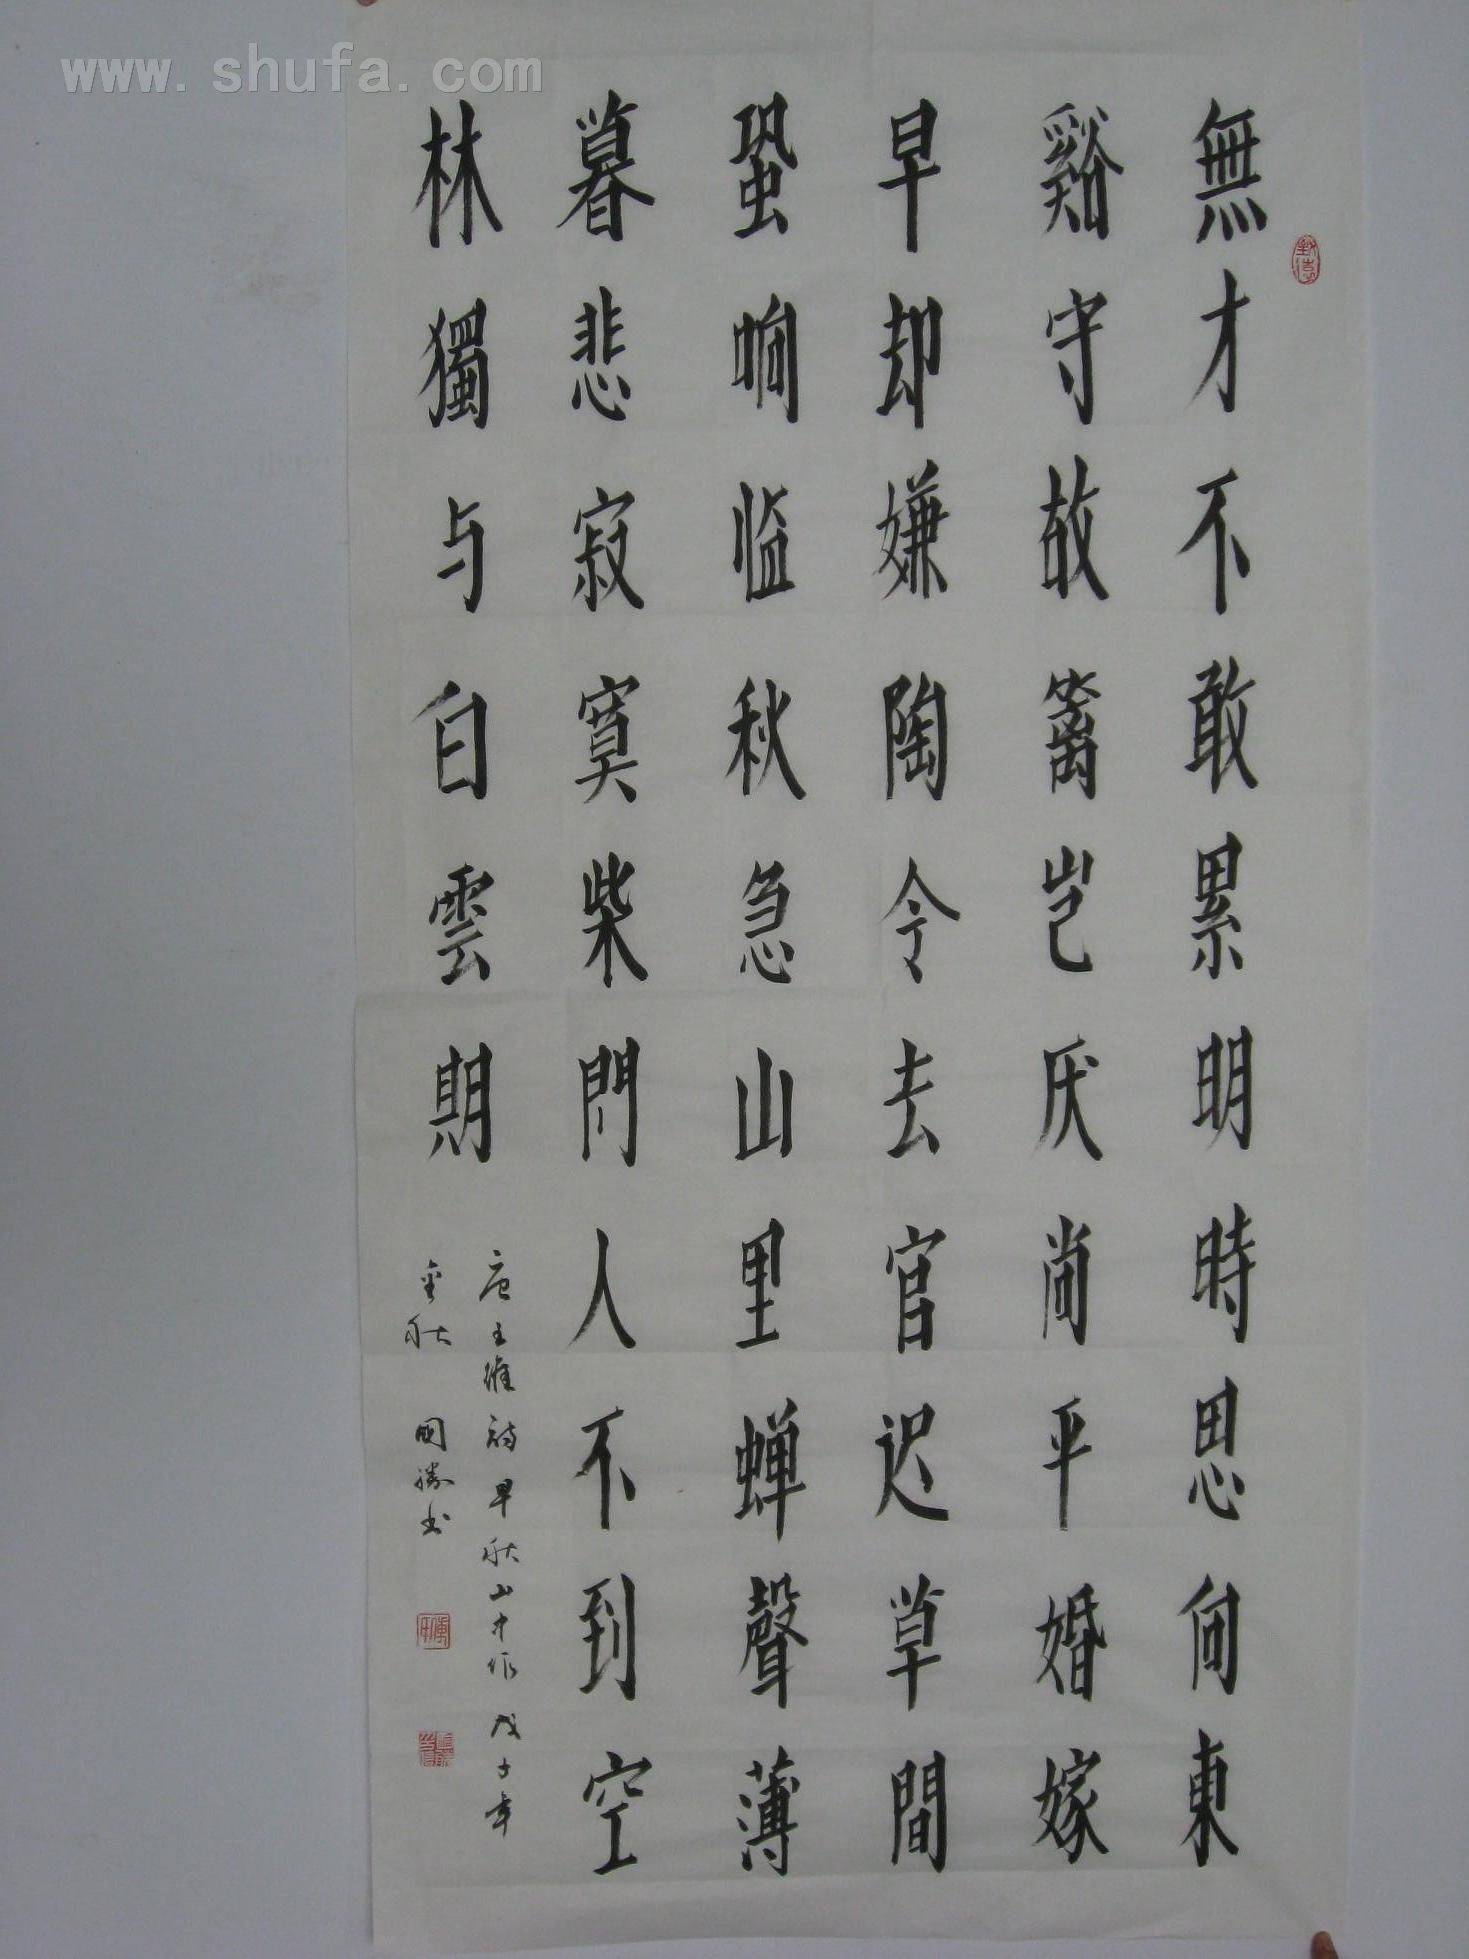 www.shufa.com
無才不敢累明時思向東
谿守故籬岂厌尚平婚嫁
早却嫌陶令去官迟草間
蛩响临秋急山里蝉聲薄
暮悲寂寞柴門人不到空
林獨与白雲期
唐王維詩早秋山中作戊子年
金秋國勝书